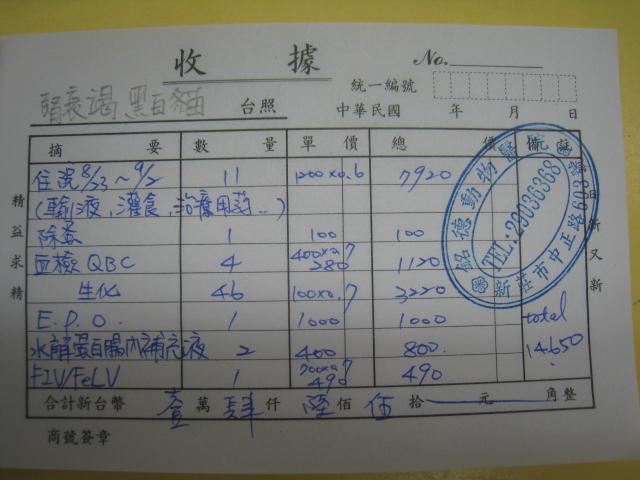 收 據
No.
統一編號
腎衰竭 黑白貓 台照
中華民國 年 月 日
摘 要 數 量 單 價 總 價 備 註
住院 8/23 ~ 9/2 11 1200x0.6 7920
(輸液, 灌食, 治療用葯...)
除蚤 1 100 100
血檢 QBC 4 400x0.7 280 1120
生化 46 100x0.7 3220
E.P.O. 1 1000 1000 total
水解蛋白腸內補充液 2 400 800 14650
FIV/FeLV 1 700x0.7 490 490
合計新台幣 壹 萬 肆 仟 陸 佰 伍 拾 元 角整
商號簽章
精益求精
日新又新
銘德動物醫院
TEL:29036368
新莊市中正路609號